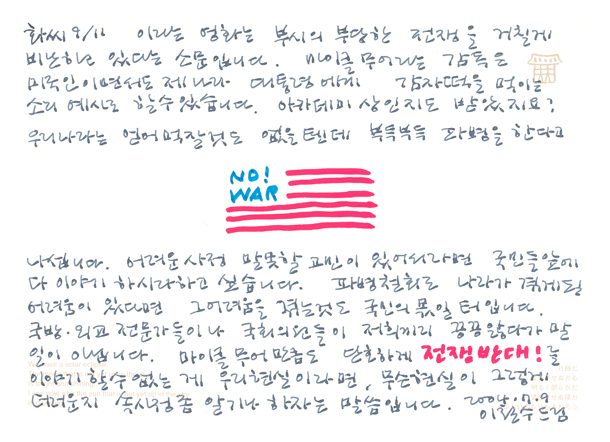 화씨 9/11 이라는 영화는 부시의 부당한 전쟁을 거칠게
비난하고 있다는 소문입니다. 마이클 무어라는 감독은
미국인이면서도 제나라 대통령에게 감자떡을 먹이는
소리 예사로 할 수 있습니다. 아카데미 상인지도 받았지요?
우리나라는 얻어먹잘것도 없을텐데 부득부득 파병을 한다고
NO!
WAR
나섭니다. 어려운 사정 말못할 고민이 있어서라면 국민들앞에
다 이야기 하시라하고 싶습니다. 파병철회로 나라가 겪게될
어려움이 있다면 그어려움을 겪는것도 국민의 몫일 터입니다.
국방·외교 전문가들이나 국회의원들이 저희끼리 끙끙앓다가 말
일이 아닙니다. 마이클 무어만큼도 단호하게 전쟁반대!를
이야기 할 수 없는 게 우리현실이라면, 무슨현실이 그렇게
더러운지 속시정좀 알기나 하자는 말씀입니다. 2004.7.9
이철수드림